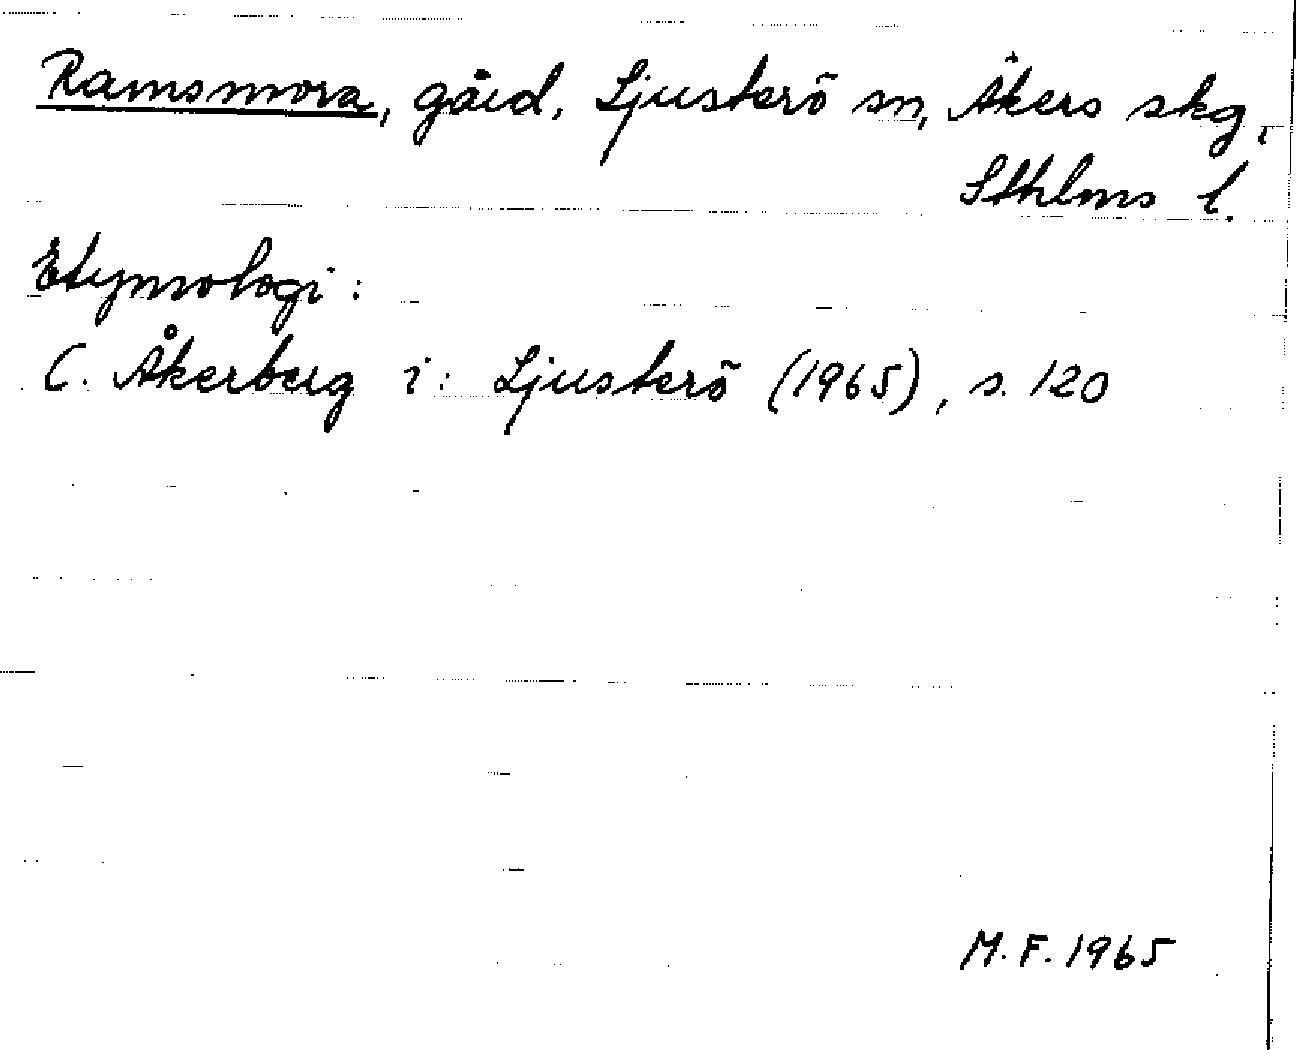 Ramsmora, gård, Ljusterö sn, Åkers skg,
Sthlms l.
Etymologi:
C. Åkerberg i: Ljusterö (1965), s. 120
M.F. 1965